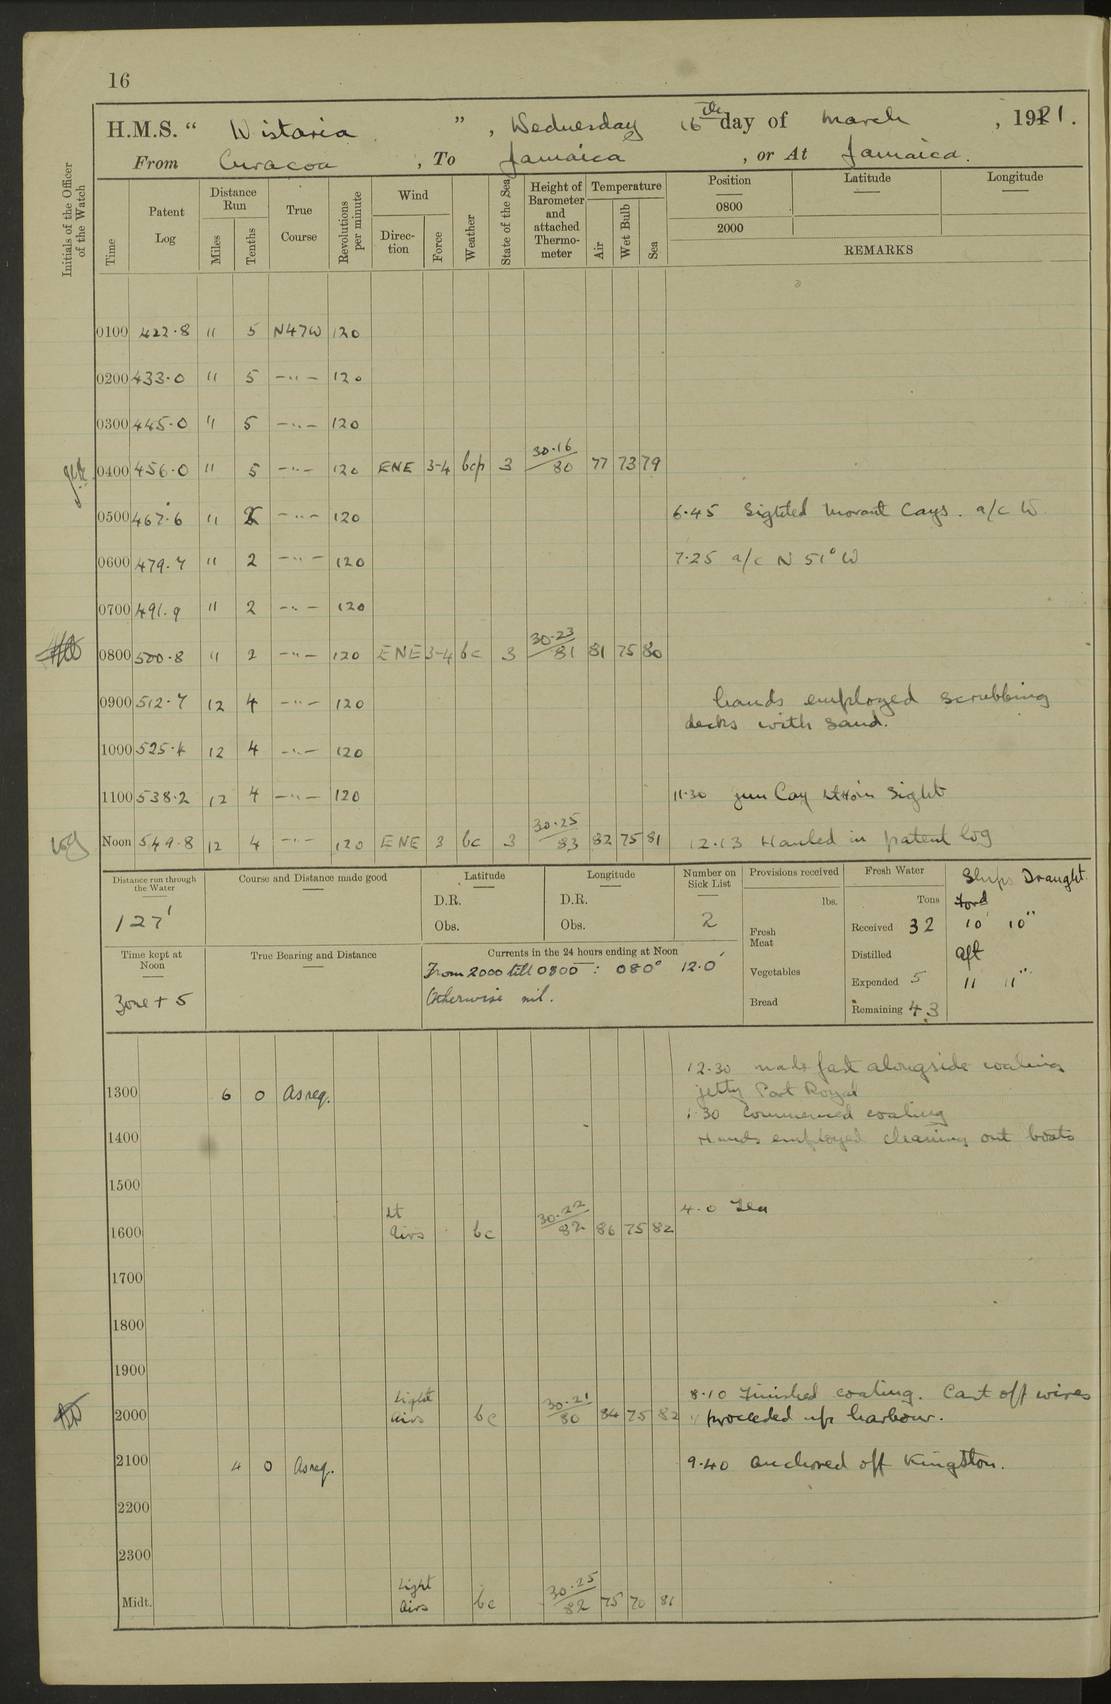 16
H.M.S. " Wistaria " , Wednesday 16th day of March , 1921.
From Curacoa , To Jamaica , or At Jamaica.
Initials of the Officer of the Watch
Time Patent Log Distance Run Miles Tenths True Course Revolutions per minute Wind Direc-tion Force Weather State of the Sea Height of Barometer and attached Thermo-meter Temperature Air Wet Bulb Sea Position Latitude Longitude
0800
2000
REMARKS
0100 422.8 " 5 N47W 120
0200 433.0 " 5 -"- 120
0300 445.0 " 5 -"- 120
0400 456.0 " 5 -"- 120 ENE 3-4 bcp 3 30.16/80 77 73 79
0500 467.6 " -"- 120 6.45 Sighted Morant Cays. a/c W
0600 479.7 " 2 -"- 120 7.25 a/c N 51° W
0700 491.9 " 2 -"- 120
0800 500.8 " 2 -"- 120 ENE 3-4 bc 3 30.23/81 81 75 80
0900 512.7 12 4 -"- 120 hands employed scrubbing
decks with sand.
1000 525.4 12 4 -"- 120
1100 538.2 12 4 -"- 120 11.30 Gun Cay Lt Ho in sight
Noon 549.8 12 4 -"- 120 ENE 3 bc 3 30.25/83 82 75 81 12.13 Hauled in patent log
Distance run through the Water Course and Distance made good Latitude Longitude Number on Sick List Provisions received Fresh Water Ships Draught
127' D.R. D.R. 2 lbs. Tons Ford
Obs. Obs. Fresh Meat Received 32 10' 10"
Time kept at Noon True Bearing and Distance Currents in the 24 hours ending at Noon Distilled aft
Zone + 5 From 2000 till 0800 : 080° 12.0' Vegetables Expended 5 11' 11"
Otherwise nil. Bread Remaining 43
12.30 made fast alongside coaling
1300 6 0 As req. jetty Port Royal
1.30 Commenced coaling
1400 Hands employed cleaning out boats
1500
4.0 Tea
1600 Lt airs bc 30.22/82 86 75 82
1700
1800
1900
8.10 Finished coaling. Cast off wires
2000 Light airs bc 30.21/80 84 75 82 " proceeded up harbour.
2100 4 0 As req. 9.40 Anchored off Kingston.
2200
2300
Midt. Light airs bc 30.25/82 75 70 81